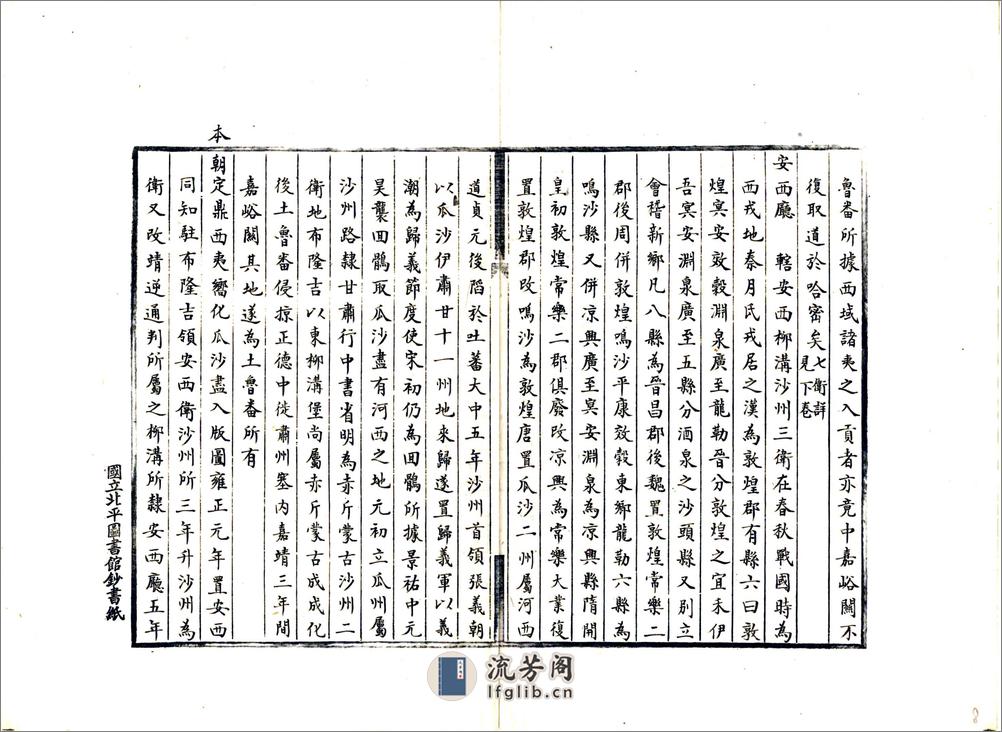 魯番所據西域諸夷之入貢者亦竟中嘉峪關不
復取道於哈密矣七衛詳見下卷
安西廳　轄安西柳溝沙州三衛在春秋戰國時為
西戎地秦月氏戎居之漢為敦煌郡有縣六曰敦
煌冥安效穀淵泉廣至龍勒晉分敦煌之宜禾伊
吾冥安淵泉廣至五縣分酒泉之沙頭縣又別立
會稽新鄉凡八縣為晉昌郡後魏置敦煌常樂二
郡後周併敦煌鳴沙平康效穀東鄉龍勒六縣為
鳴沙縣又併凉興廣至冥安淵泉為凉興縣隋開
皇初敦煌常樂二郡俱廢改凉興為常樂大業復
置敦煌郡改鳴沙為敦煌唐置瓜沙二州屬河西
道貞元後陷於吐蕃大中五年沙州首領張義朝
以瓜沙伊肅甘十一州地來歸遂置歸義軍以義
潮為歸義節度使宋初仍為回鶻所據景祐中元
昊襲回鶻取瓜沙盡有河西之地元初立瓜州屬
沙州路隸甘肅行中書省明為赤斤蒙古沙州二
衛地布隆吉以東柳溝堡尚屬赤斤蒙古成成化
後土魯番侵掠正德中徙肅州塞內嘉靖三年間
嘉峪關其地遂為土魯番所有
本朝定鼎西夷嚮化瓜沙盡入版圖雍正元年置安西
同知駐布隆吉領安西衛沙州所三年升沙州為
衛又改靖逆通判所屬之柳溝所隸安西廳五年
國立北平圖書館鈔書紙
流芳阁
lfglib.cn
8